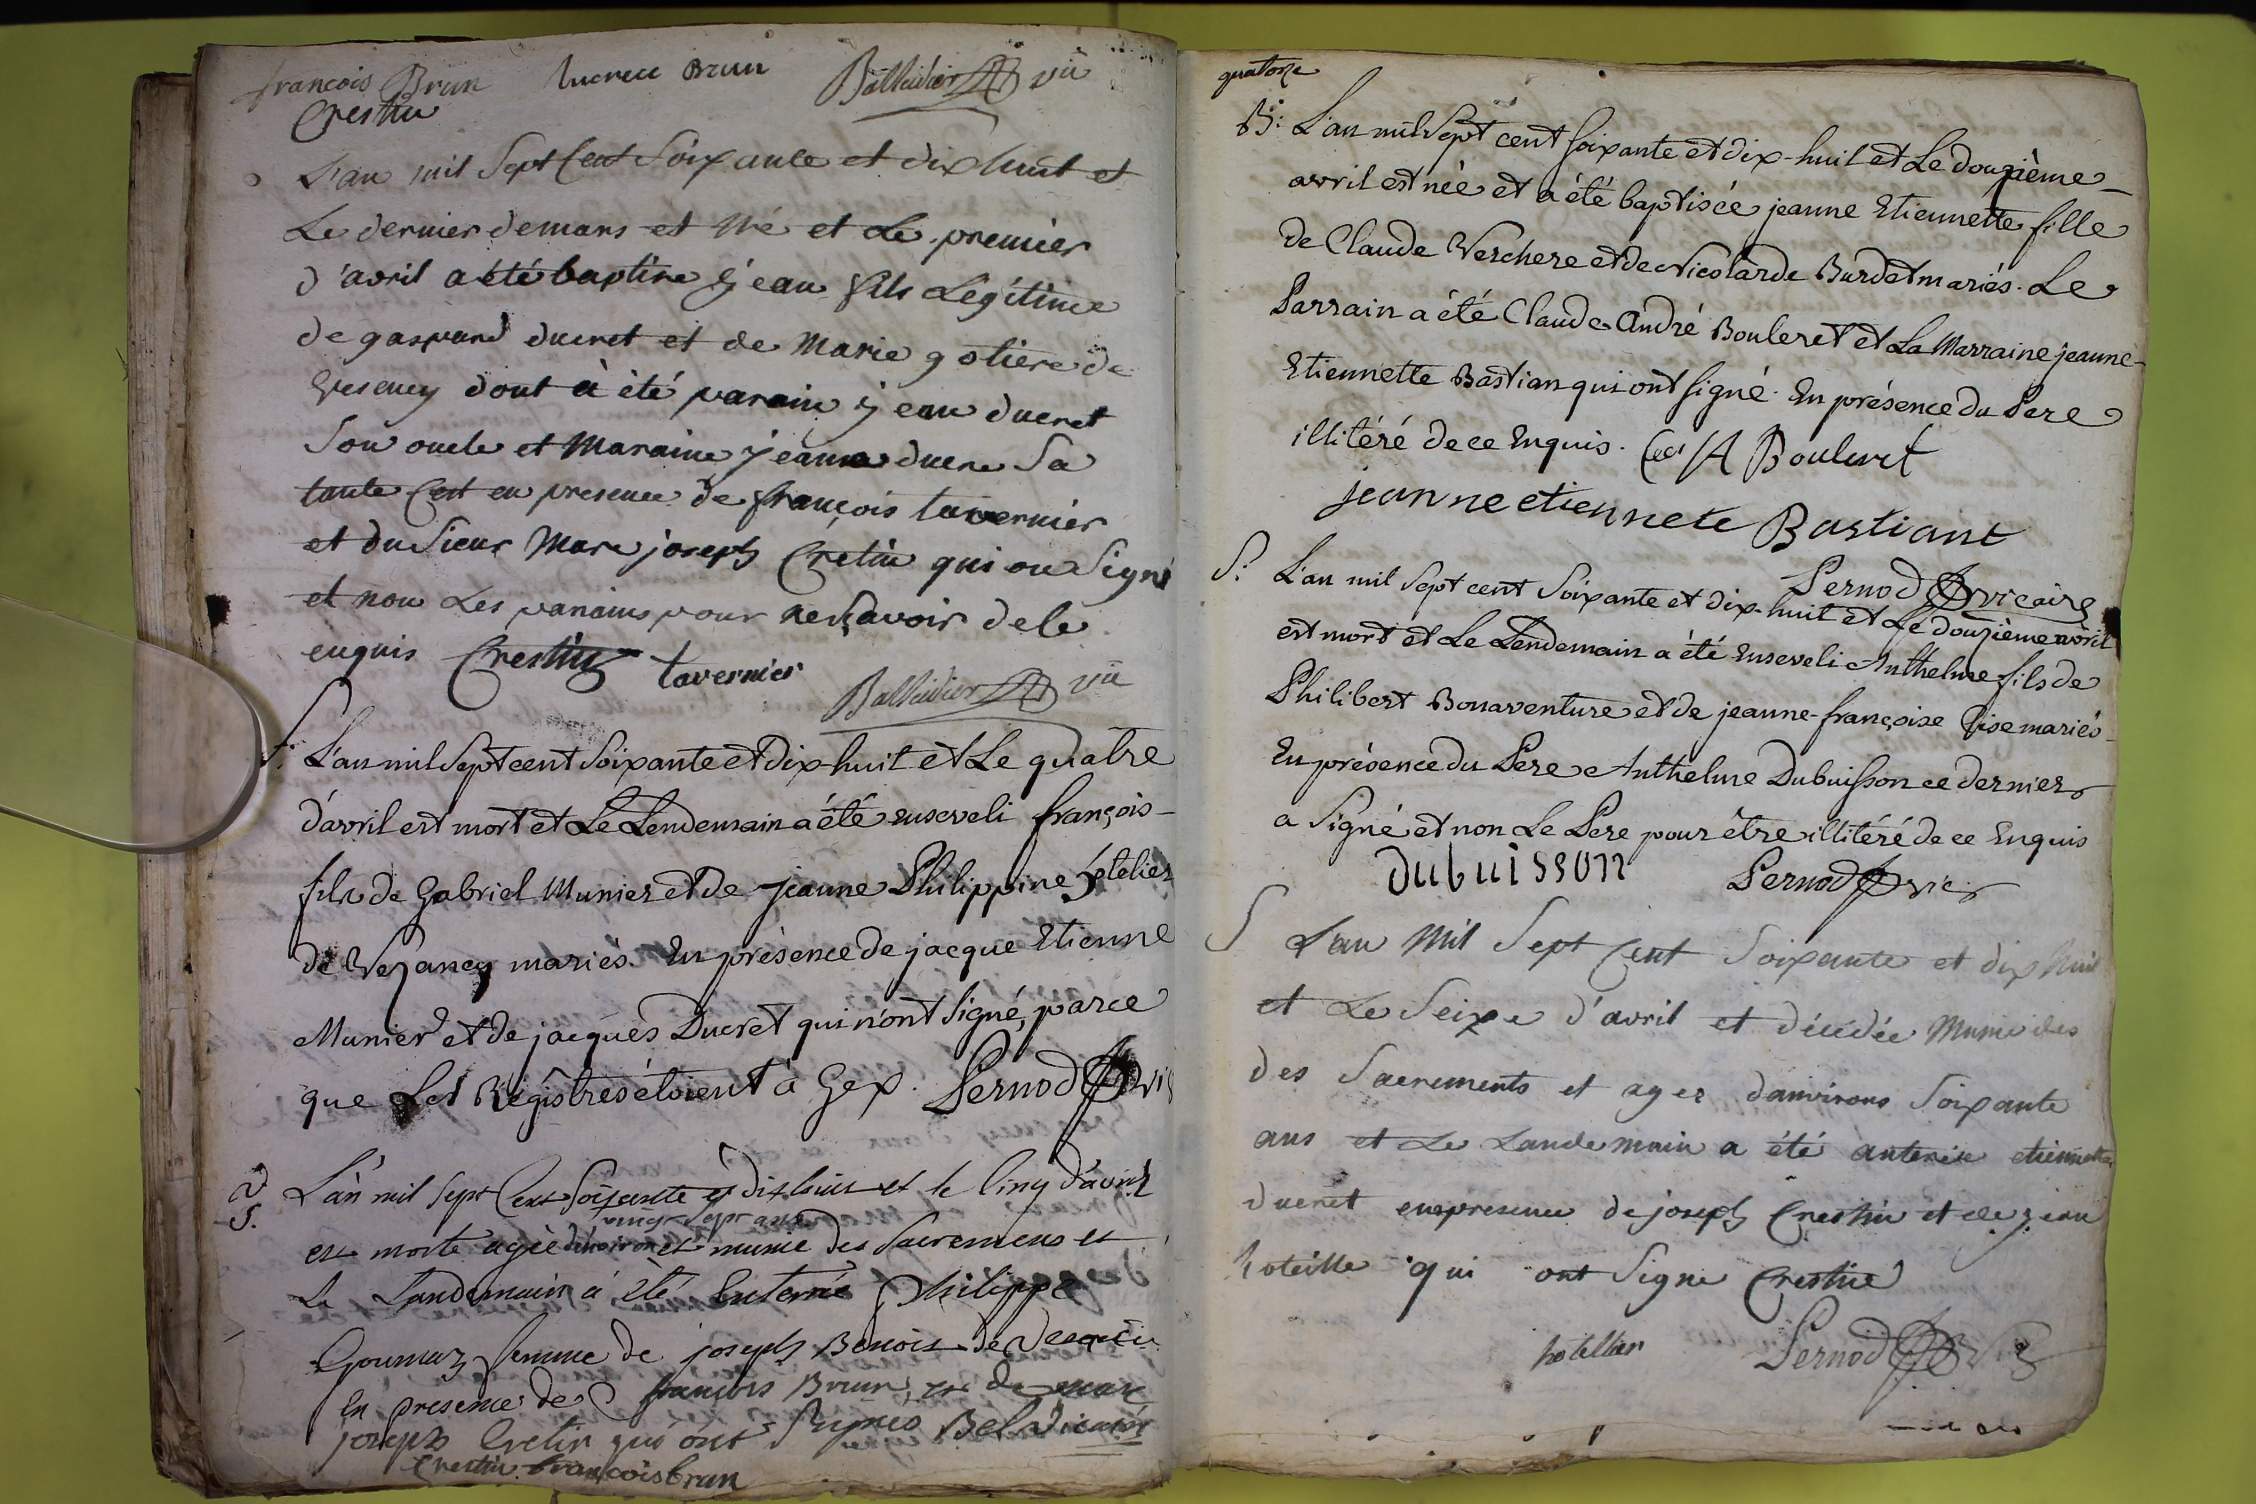 françois Brun lucrece Brun Balleidier vic
Crestin
L'an mil Sept Cent Soixante et dix huit et
Le dernier de mars et né et Le premier
d'avril a été baptise jean fils Légitime
de gaspard ducret et de Marie gotiere de
Vesency dont à été parain jean ducret
Son oncle et Maraine jeanne ducre Sa
tante C'est en presence de françois tavernier
et du Sieur Marc joseph Cretin qui on Signé
et non Les parains pour ne sçavoir de le
enquis Crestin tavernier
Balleidier vic
S: L'an mil Sept cent Soixante et dix-huit et Le quatre
d'avril est mort et Le Lendemain a été enseveli françois-
fils de Gabriel Munier et de jeanne Philippine hotelier
de Vezancy mariés. En présence de jacque Etienne
Munier et de jacques Ducret qui n'ont Signé, parce
que Les Régistres étoient à Gex. Pernod vic
S. L'an mil Sept Cent Soixante et dixhuit et le Cinq d'avril
vingt Sept ans
est morte agée d'environ et munie des Sacremens et
Le Landemain à été Enterrée Philippe
Gournaz femme de joseph Benoit de
En presence de françois Brun, et de marc
joseph Cretin qui ont Signés Bel vicaire
Crestin francois brun
quatorze
B: L'an mil Sept cent Soixante et dix-huit et Le douzième
avril est née et a été baptisée jeanne Etiennette fille
de Claude Verchere et de Nicolarde Burdet mariés. Le
Parrain a été Claude André Bouleret et La Marraine jeanne-
Etiennette Bastian qui ont Signé. En présence du Pere
illitéré de ce Enquis. A Boulerct
jeanne etiennete Bastiant
Pernod vicaire
S: L'an mil Sept cent Soixante et dix-huit et Le douzième avril
est mort et Le Lendemain a été Enseveli Anthelme fils de
Philibert Bonaventure et de jeanne-françoise Vise mariés-
En présence du Pere Anthelme Dubuisson ce dernier
a Signé et non Le Pere pour être illitéré de ce Enquis
dubuisson Pernod vic
S L'an Mil Sept Cent Soixante et dix huit
et Le Seize d'avril et décédée Munie des
des Sacrements et agez danvirons Soixante
ans et Le Landemain a été anterée etiennette
ducret en presence de joseph Crestin et de jean
hoteille qui ont Signe Crestin
hotellier Pernod vic